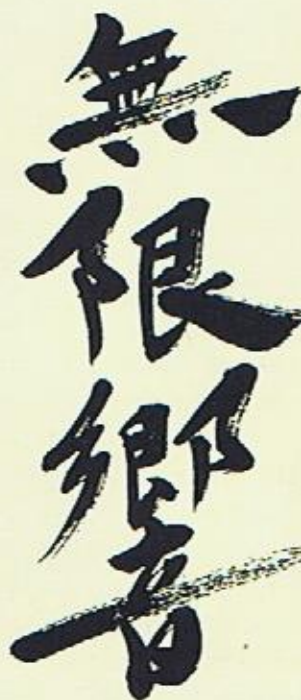 無限響